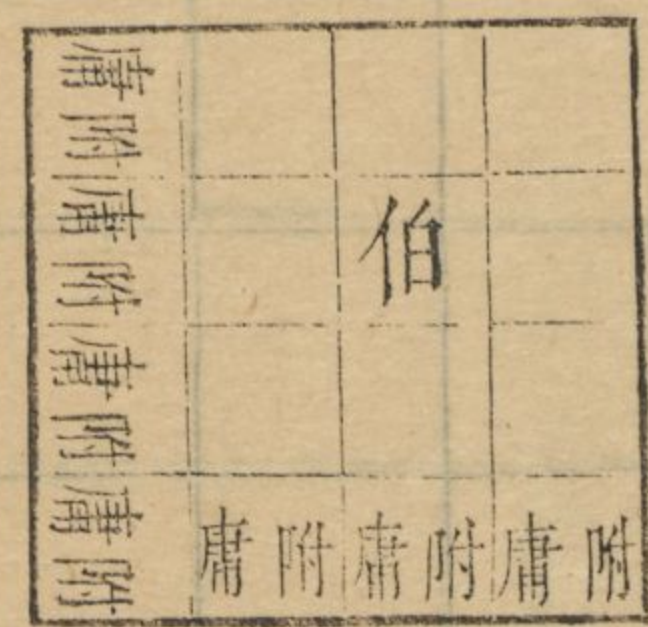 伯
附庸附庸附庸
附庸附庸附庸附庸